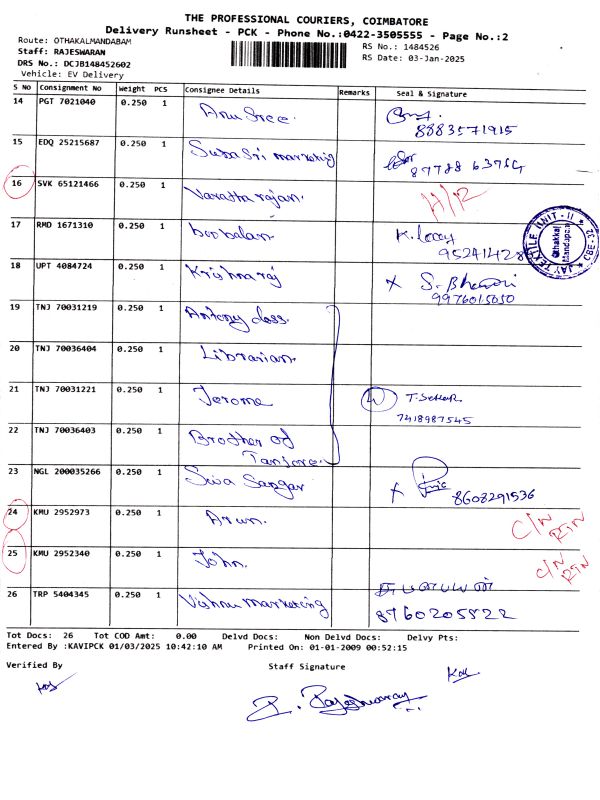 THE PROFESSIONAL COURIERS, COIMBATORE
Delivery Runsheet - PCK - Phone No.:0422-3505555 - Page No.:2
Route: OTHAKALMANDABAM
RS No.: 1484526
Staff: RAJESWARAN
RS Date: 03-Jan-2025
DRS No.: DCJB148452602
Vehicle: EV Delivery
S No Consignment No Weight PCS Consignee Details Remarks Seal & Signature
14 PGT 7021040 0.250 1 Anu Sree. 8883571915
15 EDQ 25215687 0.250 1 Suba Sri marketing
16 SVK 65121466 0.250 1 Varatha rajan.
17 RMD 1671310 0.250 1 boobalan
JAY TEXTILE UNIT - II Othakkal Mandapam CBE-32
18 UPT 4084724 0.250 1 Krishna raj X 9976015050
19 TNJ 70031219 0.250 1 Antony doss.
20 TNJ 70036404 0.250 1 Librarian.
21 TNJ 70031221 0.250 1 Jerome T. Sekar
7418987545
22 TNJ 70036403 0.250 1 Brother of
Tanjore
23 NGL 200035266 0.250 1 Siva Sangar X 8608291536
24 KMU 2952973 0.250 1 Arun. C/N RTN
25 KMU 2952340 0.250 1 John. C/N RTN
26 TRP 5404345 0.250 1 Vishnu marketing
8760205822
Tot Docs: 26 Tot COD Amt: 0.00 Delvd Docs: Non Delvd Docs: Delvy Pts:
Entered By :KAVIPCK 01/03/2025 10:42:10 AM Printed On: 01-01-2009 00:52:15
Verified By Staff Signature